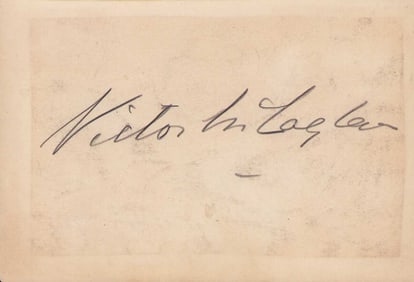 Victor McLaglen